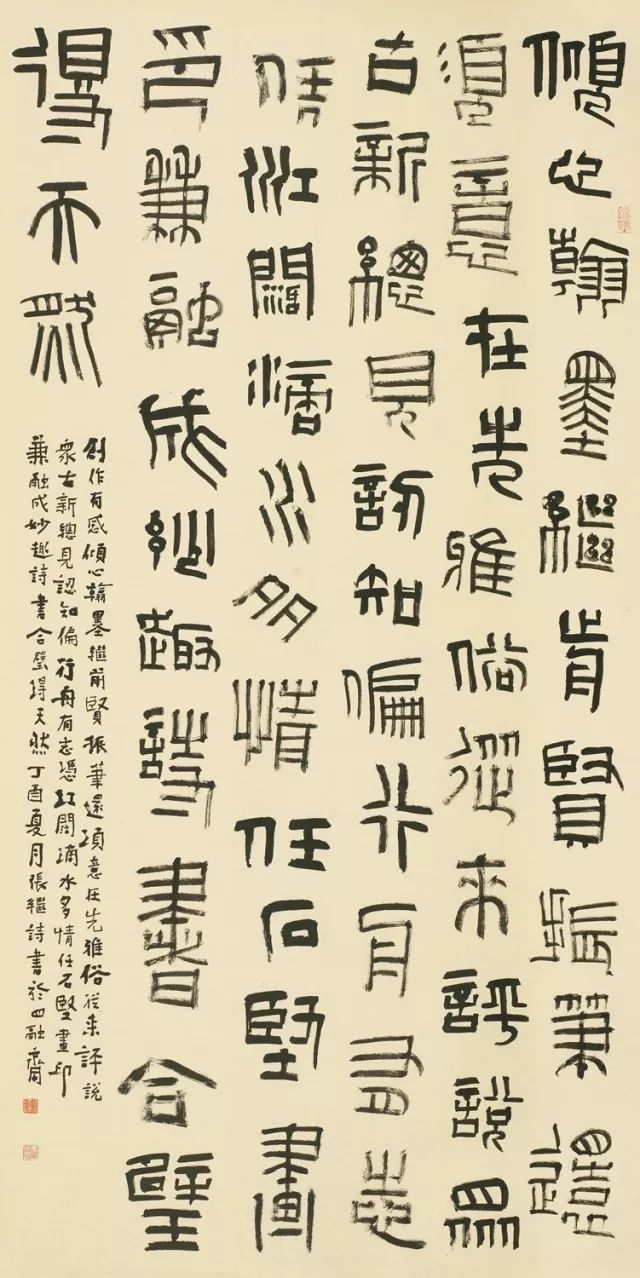 傾心翰墨繼前賢振筆還
須意在先雅俗從來評說眾
古新總見認知偏行舟有志
憑江闊滴水多情任石堅畫
印兼融成妙趣詩書合璧
得天然
創作有感傾心翰墨繼前賢振筆還須意在先雅俗從來評說
眾古新總見認知偏行舟有志憑江闊滴水多情任石堅畫印
兼融成妙趣詩書合璧得天然丁酉夏月張繼詩書於四融齋